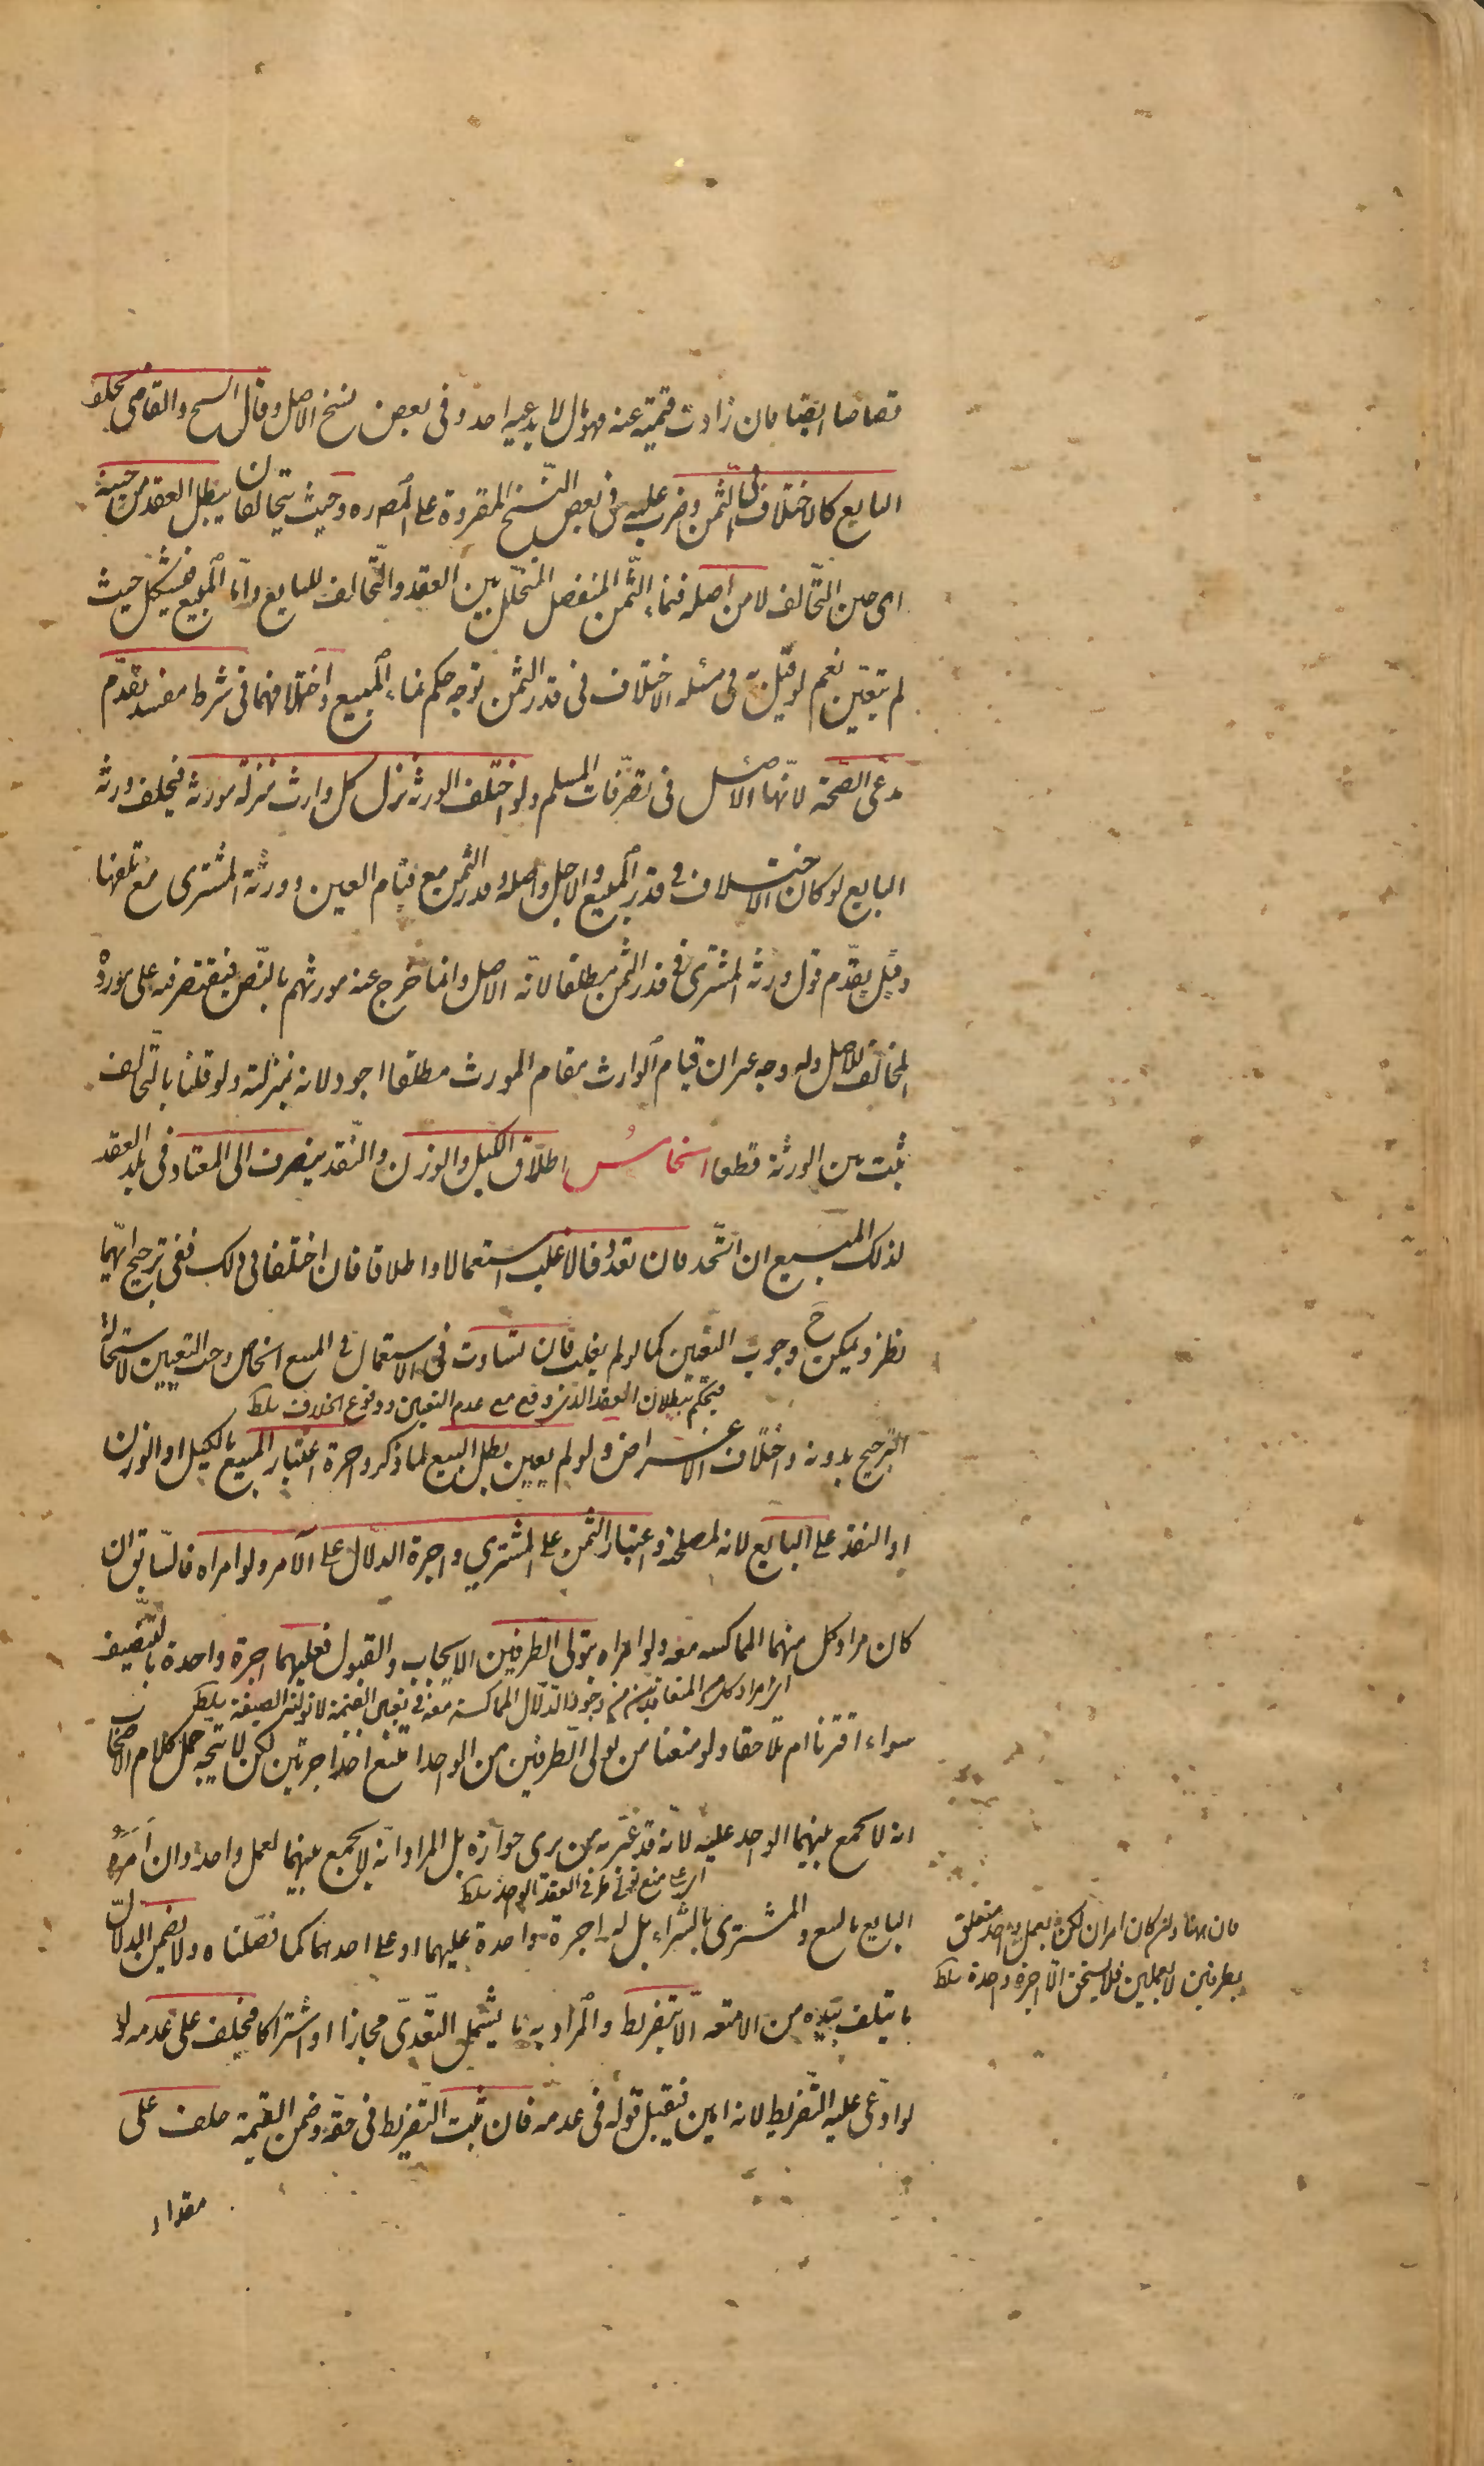 قصاصا ايضا فان زادت قيمته عنه فهو مال لا يدعيه احد وفى بعض نسخ الاصل وقال الشيخ والقاضى يحلف
البايع كالاختلاف فى الثمن وضرب عليه فى بعض النسخ المقروة على المصره وحيث يتحالفان يبطل العقد من حينه
اى حين التّحالف لا من اصله فنماء الثّمن المنفصل المتخلّل بين العقد والتّحالف للبايع وامّا المبيع فيشكل حيث
لم يتعيّن نعم لو قيل به فى مسئله الاختلاف فى قدر الثمن توجه حكم نماء المبيع واختلافهما فى شرط مفسد يقدّم
مدعى الصّحة لانّها الاصل فى تصرّفات المسلم ولو اختلف الورثه نزل كل وارث منزلة مورثه فيحلف ورثة
البايع لو كان الاختلاف فى قدر المبيع والاجل واصله وقدر الثمن مع قيام العين وورثة المشترى مع تلفها
وقيل يقدّم قول ورثة المشترى فى قدر الثمن مطلقا لانّه الاصل وانما خرج عنه مورثهم بالنّص فيقتصر فيه على مورده
المخالف للاصل وله وجه غير ان قيام الوارث مقام المورث مطلقا اجود لانه بمنزلته ولو قلنا بالتّحالف
ثبت بين الورثة قطعا الخامسُ اطلاق الكيل والوزن والنّقد ينصرف الى المعتاد فى بلد العقد
لذلك المبيع ان اتّحد فان تعدّد فالاغلب استعمالا واطلاقا فان اختلفا فى ذلك ففى ترجيح ايّهما
نظر ويمكن ح وجوب التعيّن كما لو لم يغلب فان تساوت فى الاستعمال فى المبيع الخاص وجب التعيين لاستحالة
فيحكم ببطلان العقد الذى وقع مع عدم التعيين ووقوع الخلاف سلط
الترجيح بدونه واختلاف الاغراض ولو لم يعين بطل البيع لما ذكر واجرة اعتبار المبيع بالكيل او الوزن
او النقد على البايع لانه لمصلحته واعتبار الثمن على المشتري واجرة الدلّال على الآمر ولو امراه فالسّابق ان
كان مراد كل منهما المماكسه معه ولو امراه بتولى الطرفين الايجاب والقبول فعليهما اجرة واحدة بالتّنصيف
اى مراد كل من المتعاقدين من دخول الدلّال المماكسة معه فى تعيين القيمة لا تولّى الصيغة سلط
سواء اقترنا ام تلاحقا ولو منعنا من تولى الطرفين من الواحد امتنع اخذ اجرتين لكن لا يتّجه حمل كلام الاصحاب
انه لا يجمع بينهما الواحد عليه لانه قد عبّر به من يرى جوازه بل المراد انّه لا يجمع بينهما لعمل واحد وان اَمَرَهُ
اى على منع تولى طرفى العقد الواحد سلط
البايع بالبيع والمشترى بالشّراء بل له اجرة واحدة عليهما او على احدهما كما فصّلناه ولا يضمن الدلّال
ما يتلف بيده من الامتعه الّا بتفريط والمراد به ما يشمل التّعدّى مجازا او اشتراكا فيحلف على عدمه لو
لو ادّعى عليه التّفريط لانه امين فيقبل قوله فى عدمه فان ثبت التّفريط فى حقّه وضمن القيمة حلف على
مقدار
فان هنا وان كان امران لكن بعمل واحد متعلق
بطرفين لا بعملين فلا يستحق الّا اجرة واحدة سلط